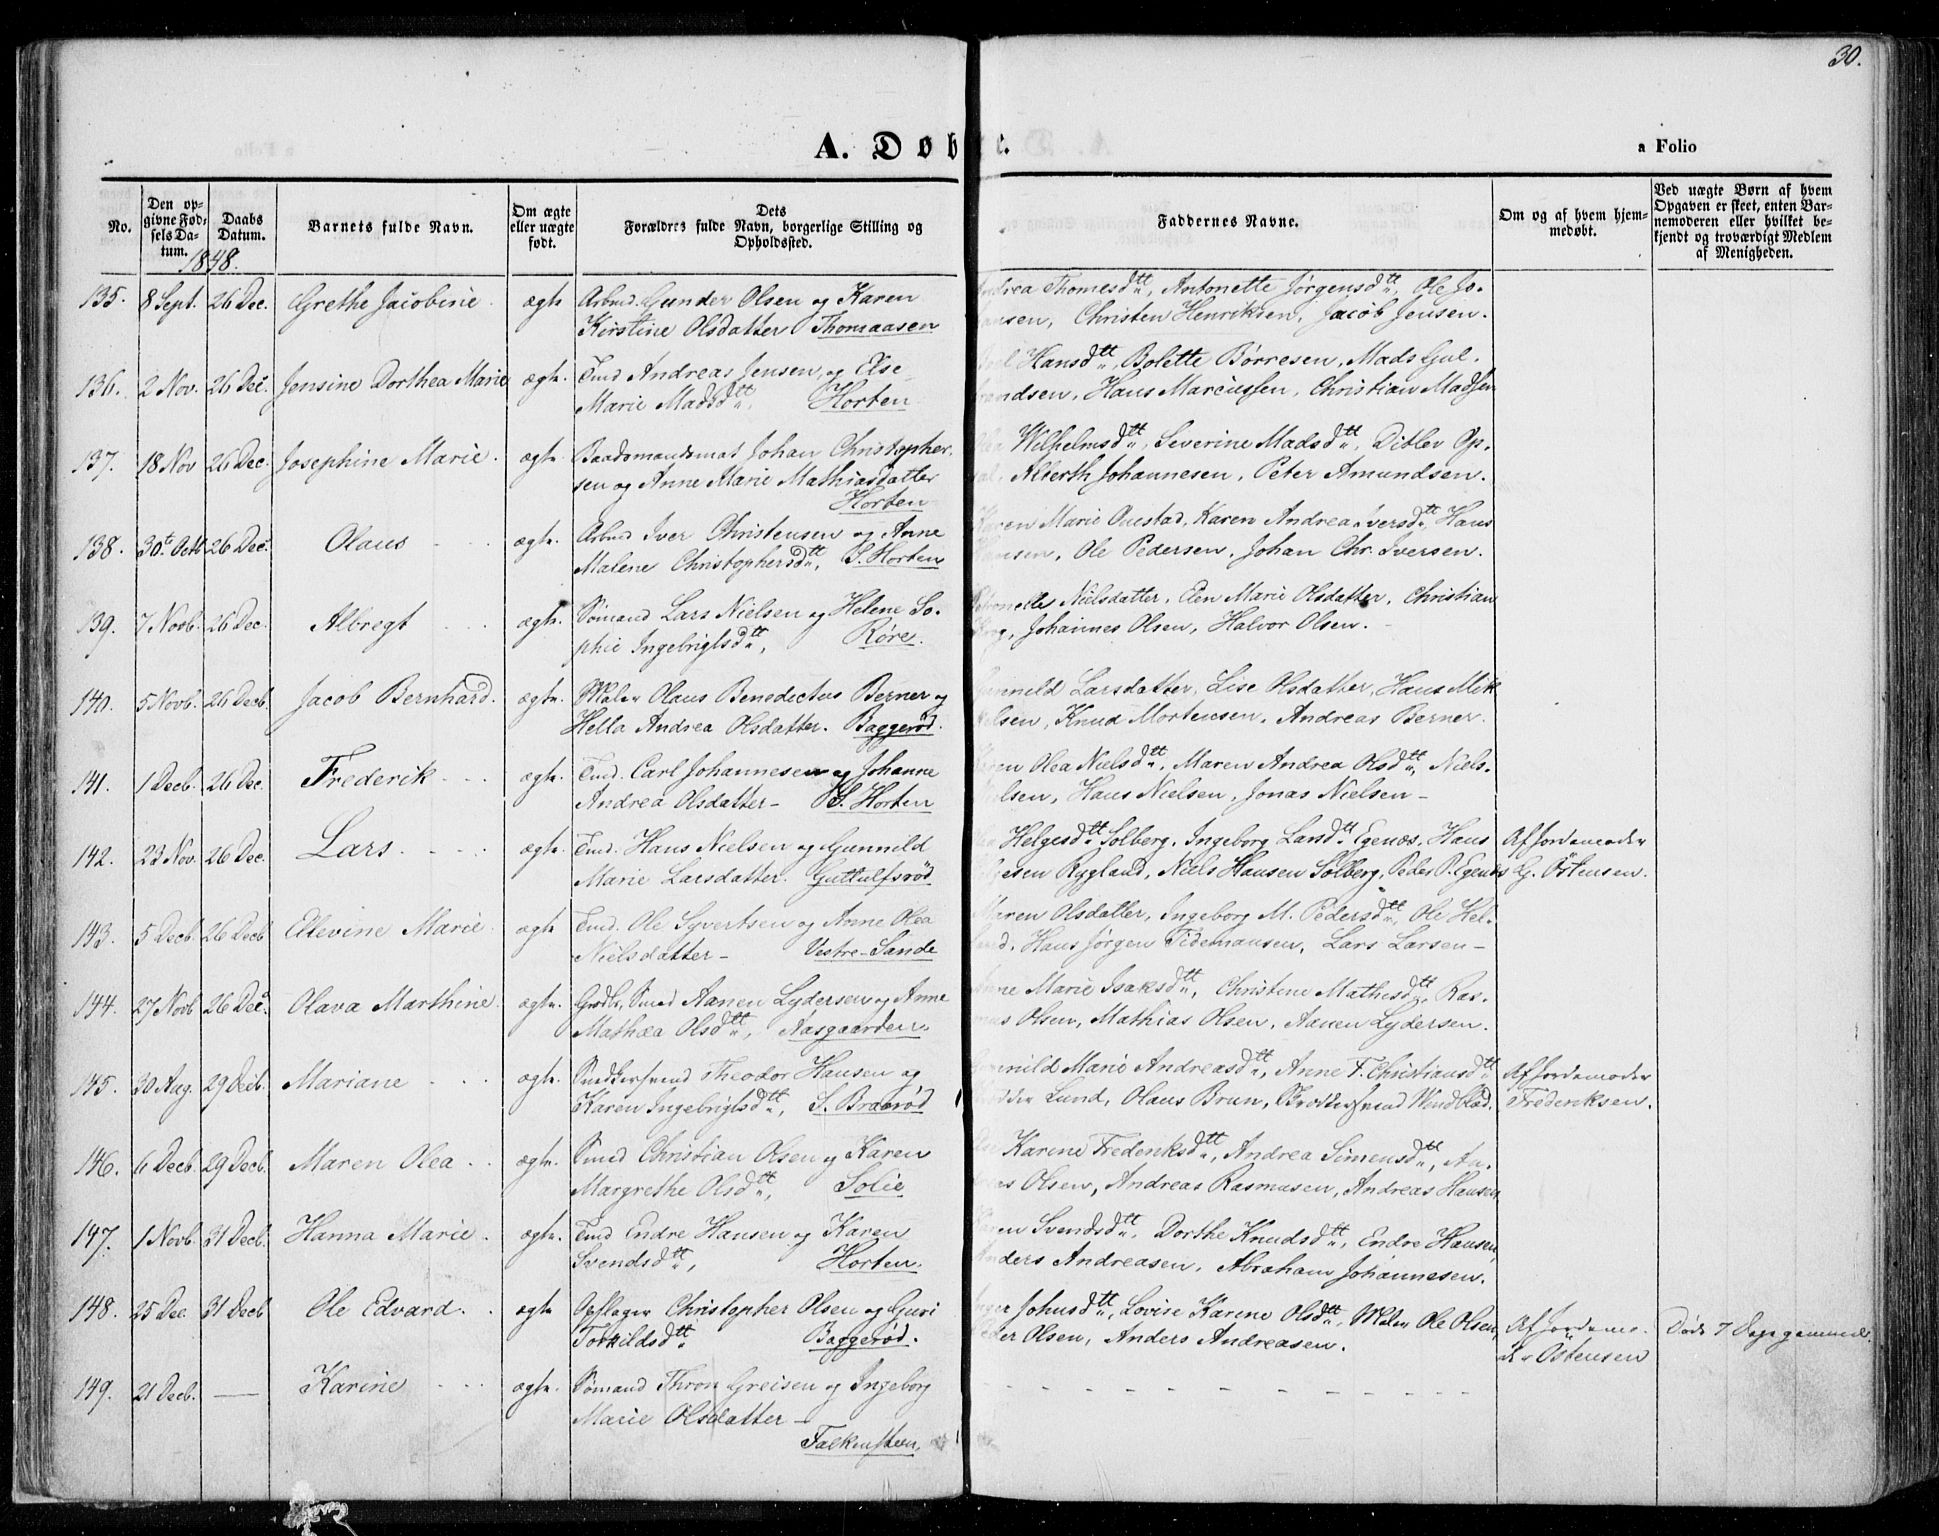 30.
A. Døbte.
a Folio
No.
Den opgivne Fødselsdatum.
Daabs Datum.
Barnets fulde Navn.
Om ægte eller uægte født.
Dets Forældres fulde Navn, borgerlige Stilling og Opholdssted.
Faddernes Navne.
Om og af hvem hjemmedøbt.
Ved uægte Børn af hvem Opgaven er skeet, enten Barnemoderen eller hvilket bekjendt og troværdigt Medlem af Menigheden.
1848.
135. 8 Sept. 26 Dec. Grethe Jacobine. ægte Arbmd. Gunder Olsen og Karen
Kirstine Olsdatter Thomaasen
Thomesdtt, Antonette Jørgensdtt, Ole Jo-
hansen, Christen Henriksen, Jacob Jensen.
136. 2 Nov. 26 Dec. Jensine Dorthea Marie ægte. Tmd Andreas Jensen, og Else
Marie Madsdtt. Horten
Hansdtt, Bolette Børresen, Mads Gul-
brandsen, Hans Marcussen, Christian Madsen
137. 18 Nov 26 Dec. Josephine Marie. ægte. Baadsmandsmat Johan Christopher-
sen og Anne Marie Mathiasdatter
Horten
Wilhelmsdtt, Severine Madsdtt, Ditlev Op-
sal, Alberth Johannesen, Peter Amundsen.
138. 30te Octb 26 Dec. Olaus ægte. Arbmd Iver Christensen og Anne
Malene Christophersdtt, S. Horten
Karen Marie Onestad, Karen Andrea Iversdtt, Hans
Hansen, Ole Pedersen, Johan Chr. Iversen.
139. 7 Novb. 26 Dec. Albregt ægte. Sømand Lars Nielsen og Helene So-
phie Ingebrigtsdtt, Røre.
Petronelle Nielsdatter, Elen Marie Olsdatter, Christian
Johannes Olsen, Halvor Olsen.
140. 5 Novb. 26 Decb. Jacob Bernhard. ægte. Maler Olaus Benedictus Berner og
Hella Andrea Olsdatter. Baggerød.
Gunnild Larsdatter, Lise Olsdatter, Hans Mik-
kelsen, Knud Mortensen, Andreas Berner.
141. 1 Decb. 26 Dec. Frederik ægte. Tmd. Carl Johannesen og Johanne
Andrea Olsdatter S. Horten
Karen Olea Nielsdtt, Maren Andrea Olsdtt, Niels
Nielsen, Hans Nielsen, Jonas Nielsen
142. 23 Nov. 26 Dec. Lars. ægte. Tmd. Hans Nielsen og Gunnild
Marie Larsdatter. Guttulfsrød
Helgesdtt Solberg, Ingeborg Larsdtt Egenæs, Hans
Rygland, Niels Hansen Solberg, Peder P. Egenæs
Af Jordemoder
G. Østensen.
143. 5 Decb. 26 Decb Ellevine Marie. ægte Tmd. Ole Syvertsen og Anne Olea
Nielsdatter Vestre-Sande
Maren Olsdatter, Ingeborg M. Pedersdtt, Ole Hel-
land, Hans Jørgen Tidemansen, Lars Larsen
144. 27 Novb 26 Dec. Olava Marthine ægte. Grdbr, Smed Aanen Lydersen og Anne
Mathæa Olsdtt, Aasgaarden.
Anne Marie Isaksdtt, Christine Mathisdtt, Ras-
mus Olsen, Mathias Olsen, Aanen Lydersen.
145. 30 Aug. 29 Decb. Mariane ægte Snedkersvend Theodor Hansen og
Karen Ingebrigtsdtt, S. Braarød
Gunnild Marie Andreasdtt, Anne F. Christiansdtt
Lund, Olaus Brun, Brødkersvend Windblad.
Af Jordemoder
Frederiksen.
146. 6 Decb. 29 Decb. Maren Olea ægte. Smed Christian Olsen og Karen
Margrethe Olsdtt, Solie
Karine Frederiksdtt, Andrea Simensdtt, An-
dreas Olsen, Andreas Rasmusen, Andreas Hansen
147. 1 Novb. 31 Decb. Hanna Marie. ægte. Tmd Endre Hansen og Karen
Svendsdtt, Horten.
Karen Svendsdtt, Dorthe Knudsdtt, Endre Hansen,
Anders Andreasen, Abraham Johannesen.
148. 25 Dec. 31 Decb Ole Edvard. ægte Opslager Christopher Olsen og Guri
Torkildsdtt Baggerød.
Inger Johnsdtt, Lovise Karine Olsdtt, Maler Ole Olsen,
Peder Olsen, Anders Andreasen.
Af Jordemo-
der Østensen
Døde 7 Dage gammel.
149. 21 Decb. Karine ægte. Sømand Thron Greisen og Ingeborg
Marie Olsdatter
Falkensteen.